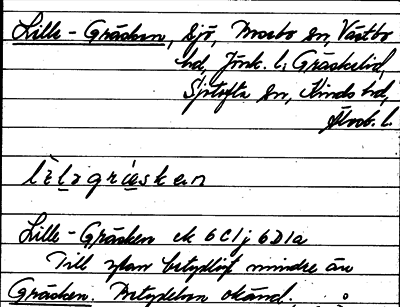 Lille-Gräsken, sjö, Mosebo sn, Västbo
hd, Jönk. l; Gräskelid,
Sjötofta sn, Kinds hd,
Älvsb. l.
lìlagrä̀skən
Lille-Gräsken ek 6C1j 6D1a
Till ytan betydligt mindre än
Gräsken. Betydelsen okänd.